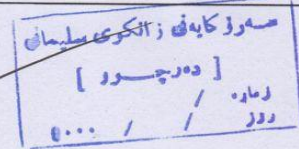 سەرۆکایەتی زانکۆی سلیمانی
[ دەرچوو ]
ژمارە /
ڕۆژ / / ٢٠٠٠